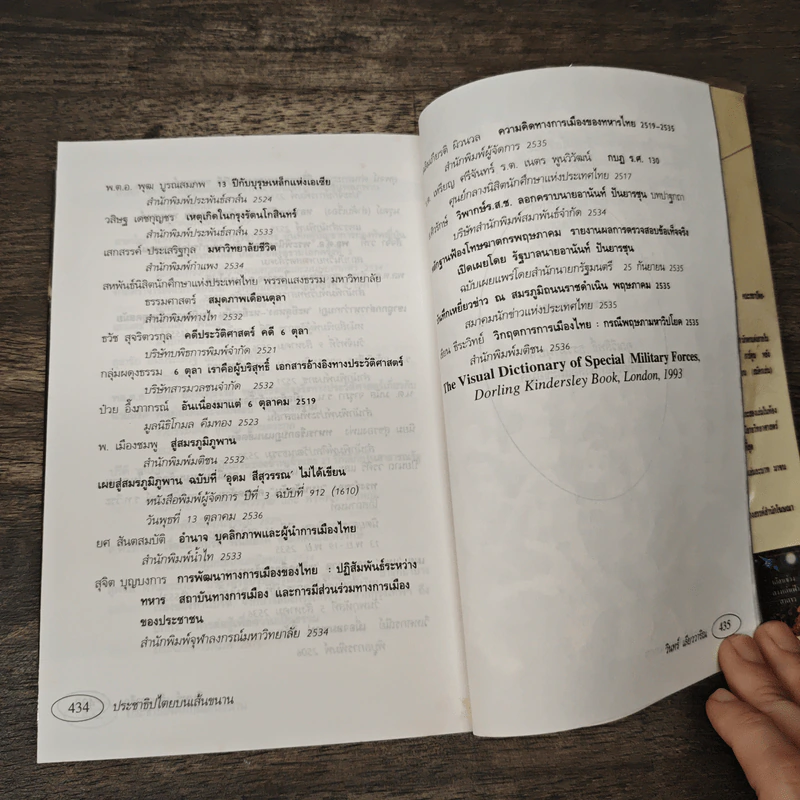 พ.ต.อ. พุฒ บูรณสมภพ 13 ปีกับบุรุษเหล็กแห่งเอเซีย
สำนักพิมพ์ประพันธ์สาส์น 2524
วสิษฐ เดชกุญชร เหตุเกิดในกรุงรัตนโกสินทร์
สำนักพิมพ์ประพันธ์สาส์น 2533
เสกสรรค์ ประเสริฐกุล มหาวิทยาลัยชีวิต
สำนักพิมพ์กำแพง 2534
สหพันธ์นิสิตนักศึกษาแห่งประเทศไทย พรรคแสงธรรม มหาวิทยาลัย
ธรรมศาสตร์ สมุดภาพเดือนตุลา
สำนักพิมพ์ทางไท 2532
ธวัช สุจริตวรกุล คดีประวัติศาสตร์ คดี 6 ตุลา
บริษัทบพิธการพิมพ์จำกัด 2521
กลุ่มผดุงธรรม 6 ตุลา เราคือผู้บริสุทธิ์ เอกสารอ้างอิงทางประวัติศาสตร์
บริษัทสารมวลชนจำกัด 2532
ป๋วย อึ๊งภากรณ์ อันเนื่องมาแต่ 6 ตุลาคม 2519
มูลนิธิโกมล คีมทอง 2523
พ. เมืองชมพู สู่สมรภูมิภูพาน
สำนักพิมพ์มติชน 2532
เผยสู่สมรภูมิภูพาน ฉบับที่ 'อุดม สีสุวรรณ' ไม่ได้เขียน
หนังสือพิมพ์ผู้จัดการ ปีที่ 3 ฉบับที่ 912 (1610)
วันพุธที่ 13 ตุลาคม 2536
ยศ สันตสมบัติ อำนาจ บุคลิกภาพและผู้นำการเมืองไทย
สำนักพิมพ์น้ำไท 2533
สุจิต บุญบงการ การพัฒนาทางการเมืองของไทย : ปฏิสัมพันธ์ระหว่าง
ทหาร สถาบันทางการเมือง และการมีส่วนร่วมทางการเมือง
ของประชาชน
สำนักพิมพ์จุฬาลงกรณ์มหาวิทยาลัย 2534
434 ประชาธิปไตยบนเส้นขนาน
ผิวนวล ความคิดทางการเมืองของทหารไทย 2519-2535
สำนักพิมพ์ผู้จัดการ 2535
เหรียญ ศรีจันทร์ ร.ต. เนตร พูนวิวัฒน์ กบฏ ร.ศ. 130
ศูนย์กลางนิสิตนักศึกษาแห่งประเทศไทย 2517
วิพากษ์ร.ส.ช. ลอกคราบนายอานันท์ ปันยารชุน บทปาฐกถา
บริษัทสำนักพิมพ์สมาพันธ์จำกัด 2534
รายงานผลการตรวจสอบข้อเท็จจริง
เปิดเผยโดย รัฐบาลนายอานันท์ ปันยารชุน
ฉบับเผยแพร่โดยสำนักนายกรัฐมนตรี 25 กันยายน 2535
ณ สมรภูมิถนนราชดำเนิน พฤษภาคม 2535
สมาคมนักข่าวแห่งประเทศไทย 2535
ธีระวิทย์ วิกฤตการการเมืองไทย : กรณีพฤษภามหาวิปโยค 2535
สำนักพิมพ์มติชน 2536
The Visual Dictionary of Special Military Forces,
Dorling Kindersley Book, London, 1993
วินทร์ เลียววาริณ 435